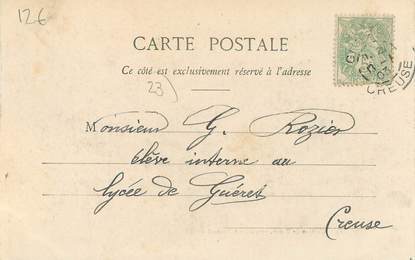 126
CARTE POSTALE
Ce côté est exclusivement réservé à l'adresse
23)
Monsieur G. Rozier
élève interne au
lycée de Guéret
Creuse
CREUSE